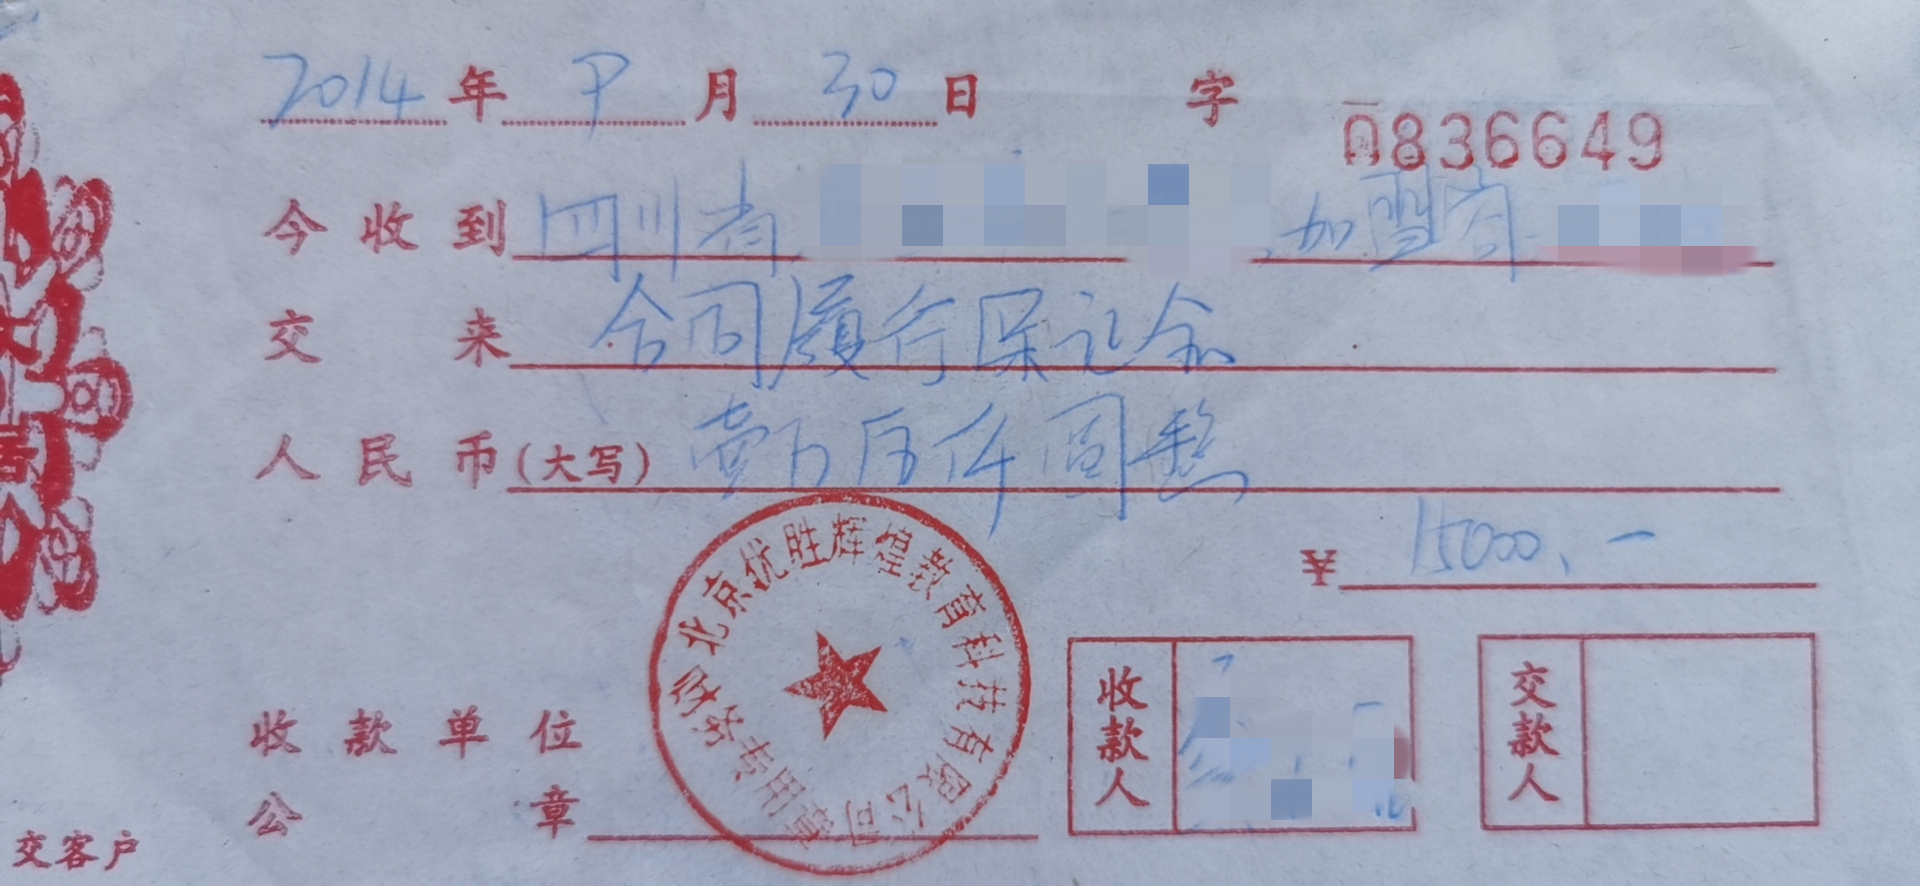 2014年 9月 30日 字 0836649
今收到 四川省 加盟商
交来 合同履行保证金
人民币(大写) 壹万伍仟圆整
¥ 15000.-
北京优胜辉煌教育科技有限公司
财务专用章
收款单位
公章
收款人
交款人
交客户